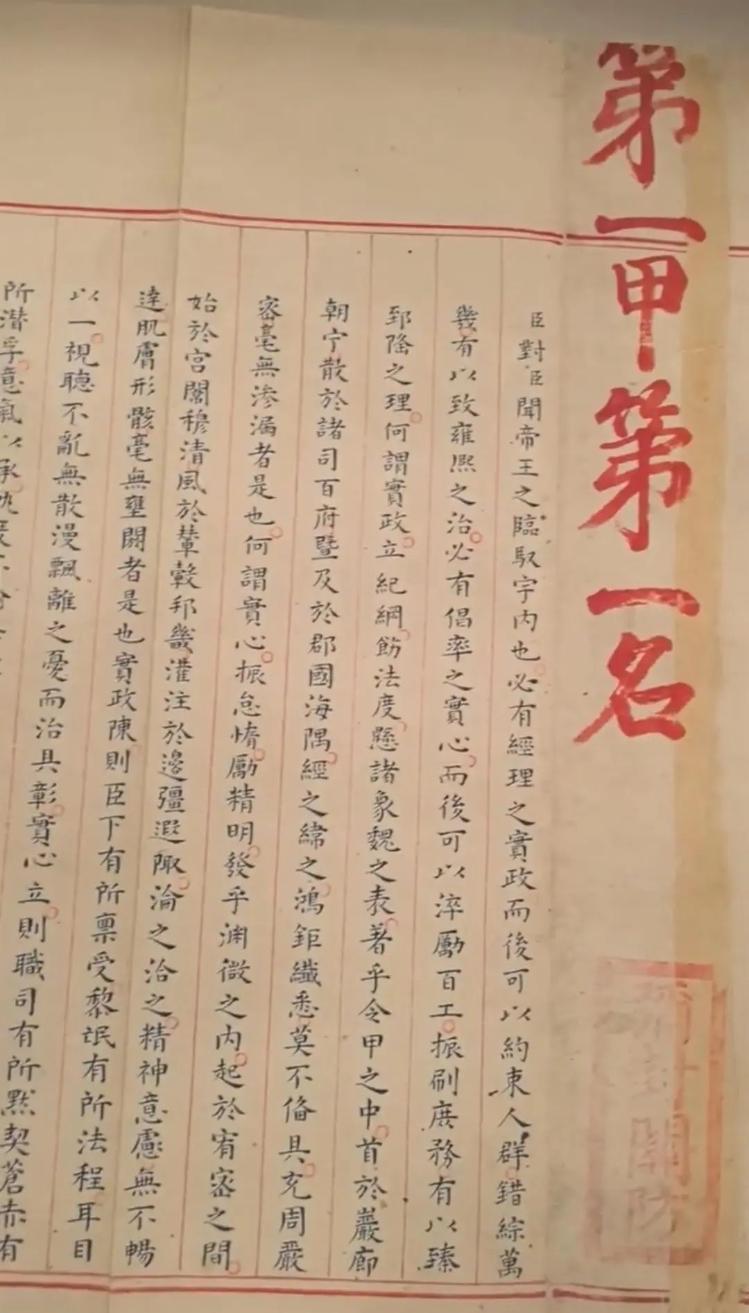 第一甲第一名
彌封關防
臣對臣聞帝王之臨馭宇内也必有經理之實政而後可以約束人群錯綜萬
幾有以致雍熙之治必有倡率之實心而後可以淬勵百工振刷庶務有以臻
郅隆之理何謂實政立紀綱飭法度懸諸象魏之表著乎令甲之中首於巖廊
朝宁散於諸司百府暨及於郡國海隅經之緯之鴻鉅纖悉莫不俻具充周嚴
宻毫無滲漏者是也何謂實心振怠惰勵精明發乎渊微之内起於宥宻之間
始於宫闈穆清風於輦轂邦畿灌注於邊疆遐陬淪之洽之精神意慮無不暢
達肌膚形骸毫無壅閼者是也實政陳則臣下有所禀受黎氓有所法程耳目
以一視聽不亂無散漫飄離之憂而治具彰實心立則職司有所默契蒼赤有
所潛孚意氣以承